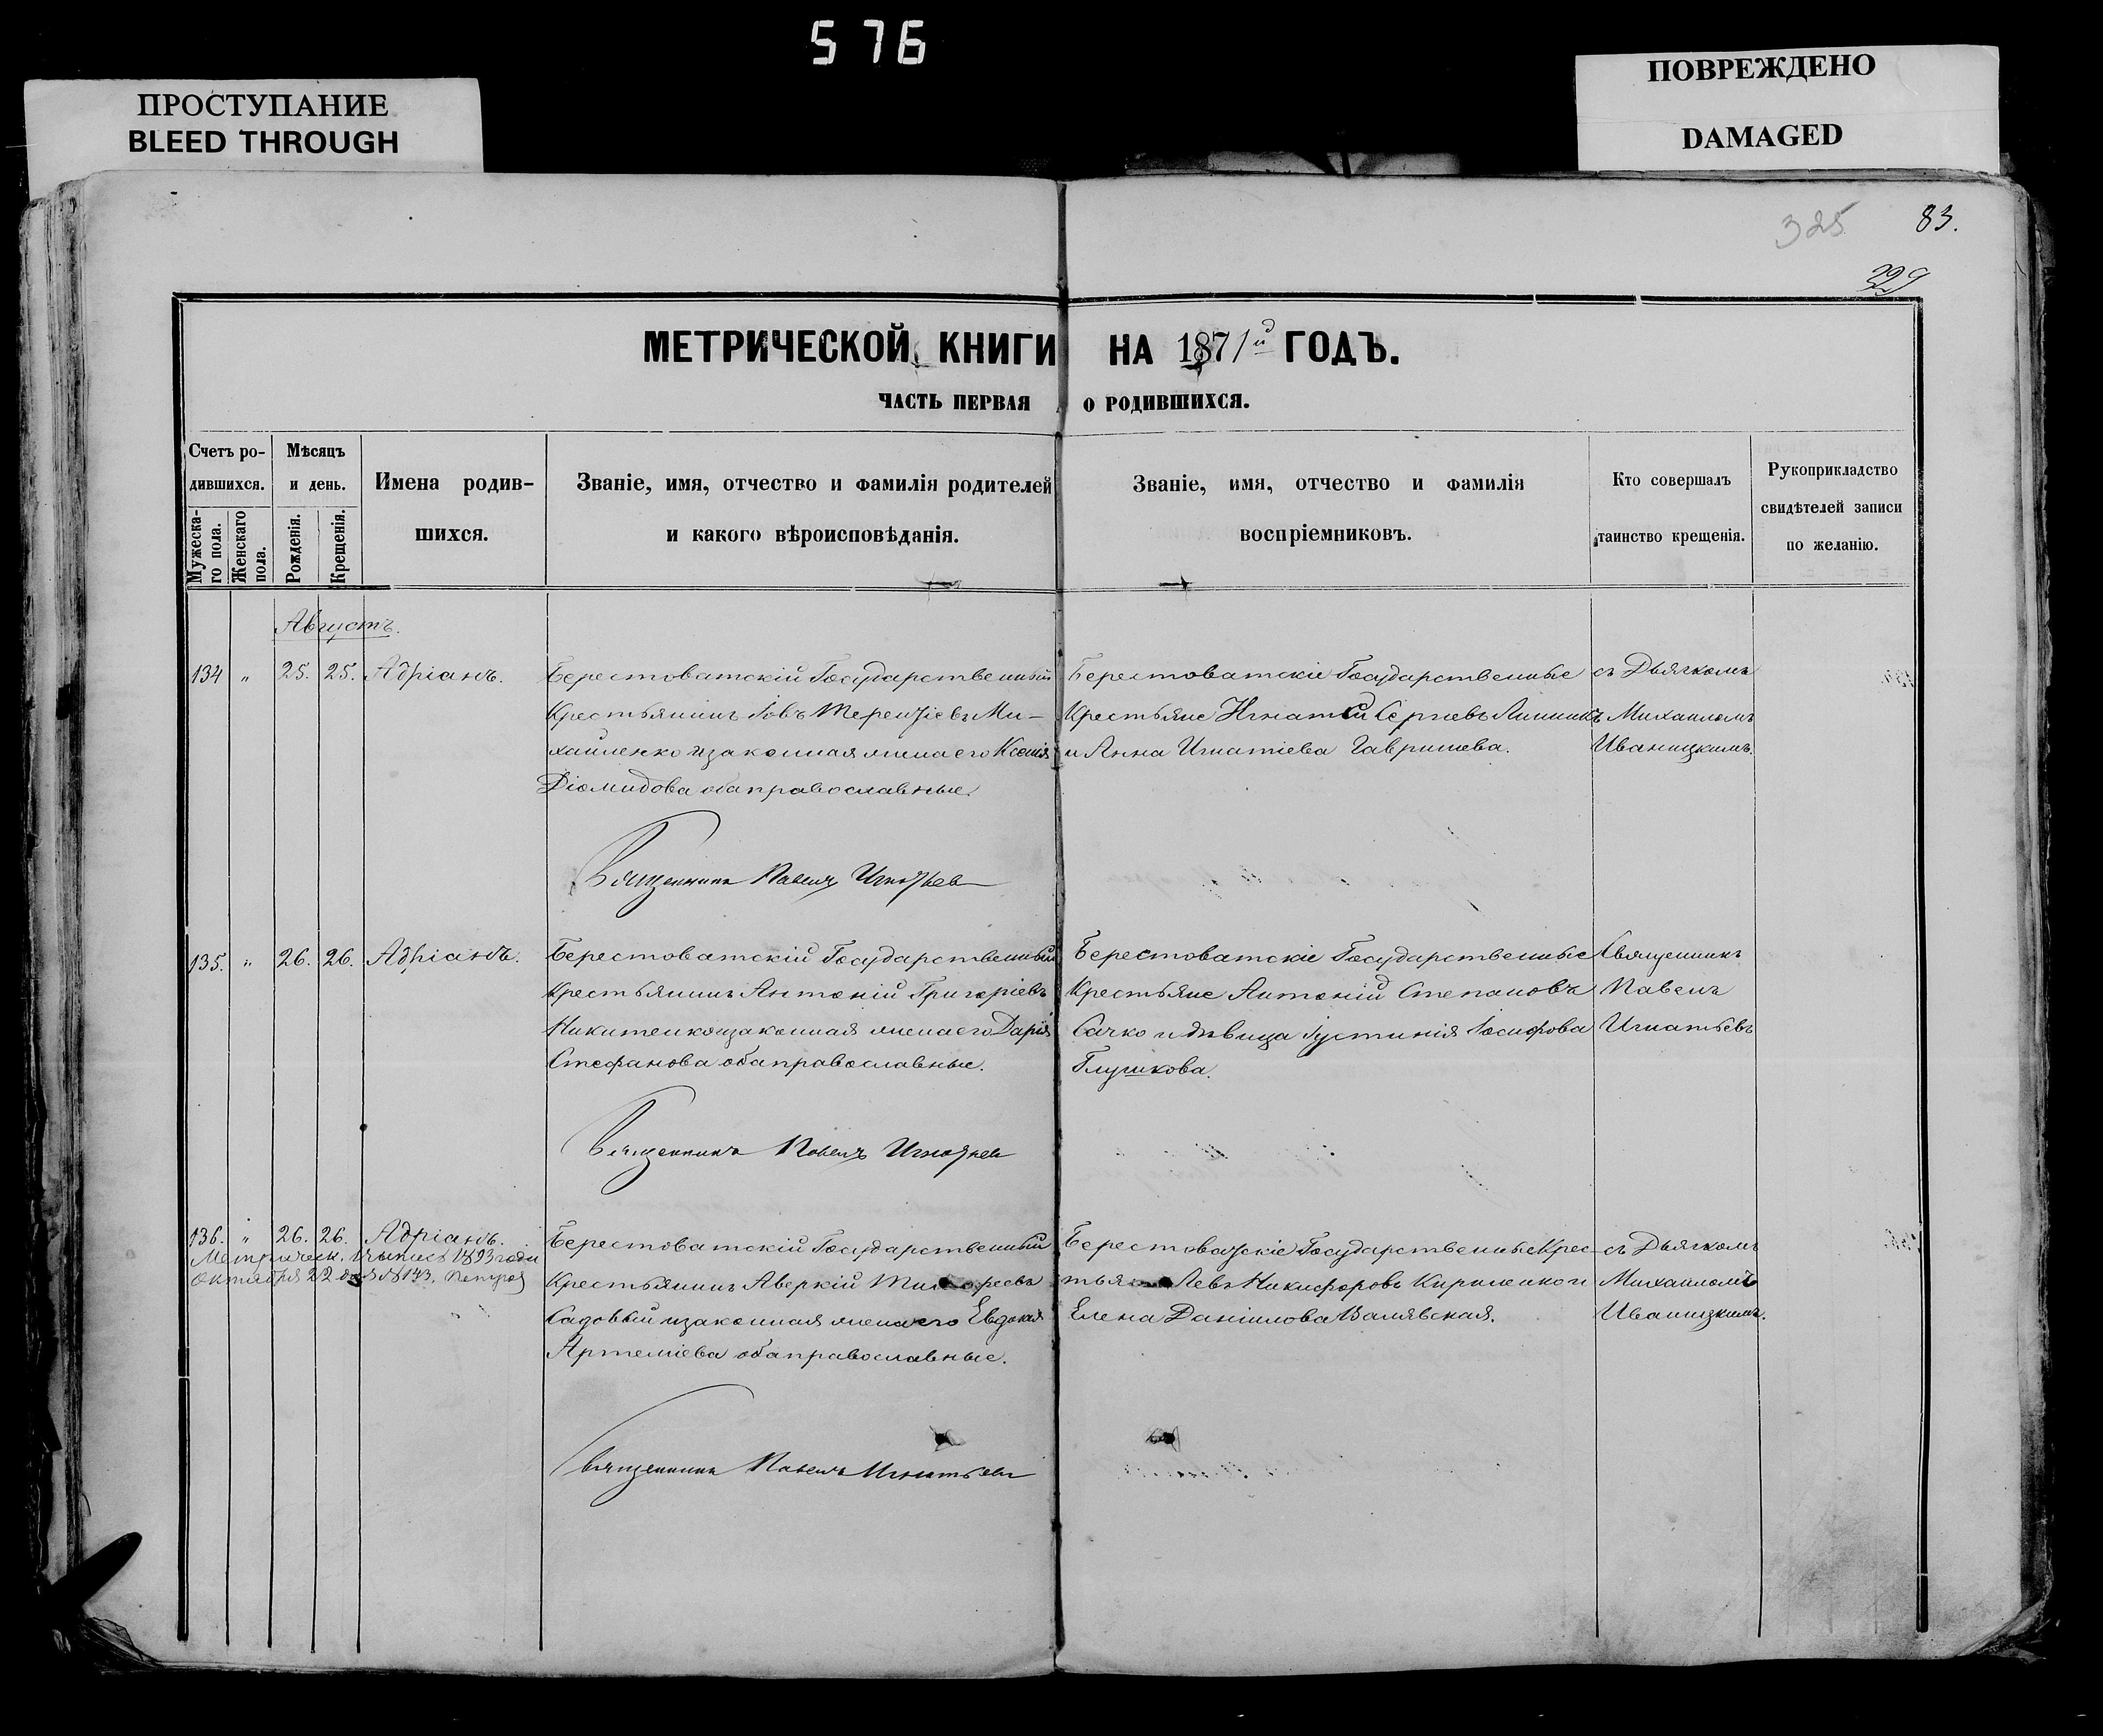 576
ПРОСТУПАНИЕ
BLEED THROUGH
ПОВРЕЖДЕНО
DAMAGED
325
83.
329
МЕТРИЧЕСКОЙ КНИГИ НА 1871й ГОДЪ.
ЧАСТЬ ПЕРВАЯ О РОДИВШИХСЯ.
Счетъ ро-
дившихся.
Мужеска-
го пола.
Женскаго
пола.
Мѣсяцъ
и день.
Рожденія.
Крещенія.
Имена родив-
шихся.
Званіе, имя, отчество и фамилія родителей
и какого вѣроисповѣданія.
Званіе, имя, отчество и фамилія
воспріемниковъ.
Кто совершалъ
таинство крещенія.
Рукоприкладство
свидѣтелей записи
по желанію.
Августъ.
134 „ 25. 25. Адріанъ.
Берестоватскій Государственный
Крестьянинъ Іовъ Терентіевъ Ми-
хайленко и законная жена его Ксенія
Діомидова оба православные.
Берестоватскіе Государственные
Крестьяне Игнатій Сергіевъ Линникъ
и Анна Игнатіева Гавришева.
съ Дьячкомъ
Михаиломъ
Иваницкимъ.
Священникъ Павелъ Игнатьевъ
135. „ 26. 26. Адріанъ.
Берестоватскій Государственный
Крестьянинъ Антоній Григоріевъ
Никитенко и законная жена его Дарія
Стефанова оба православные.
Берестоватскіе Государственные
Крестьяне Антоній Степановъ
Сачко и дѣвица Іустинія Іосифова
Глушкова.
Священникъ
Павелъ
Игнатьевъ
Священникъ Павелъ Игнатьевъ
136. „ 26. 26. Адріанъ.
Метрическ. выпись 1893 года
Октября 22 дня № 173.
Берестоватскій Государственный
Крестьянинъ Аверкій
Садовый и законная жена его Евдокія
Артеміева оба православные.
Берестоватскіе Государственные Крес-
Левъ Никифоровъ Кириленко и
Елена Даніилова Валявская.
съ Дьячкомъ
Михаиломъ
Иваницкимъ.
Священникъ Павелъ Игнатьевъ